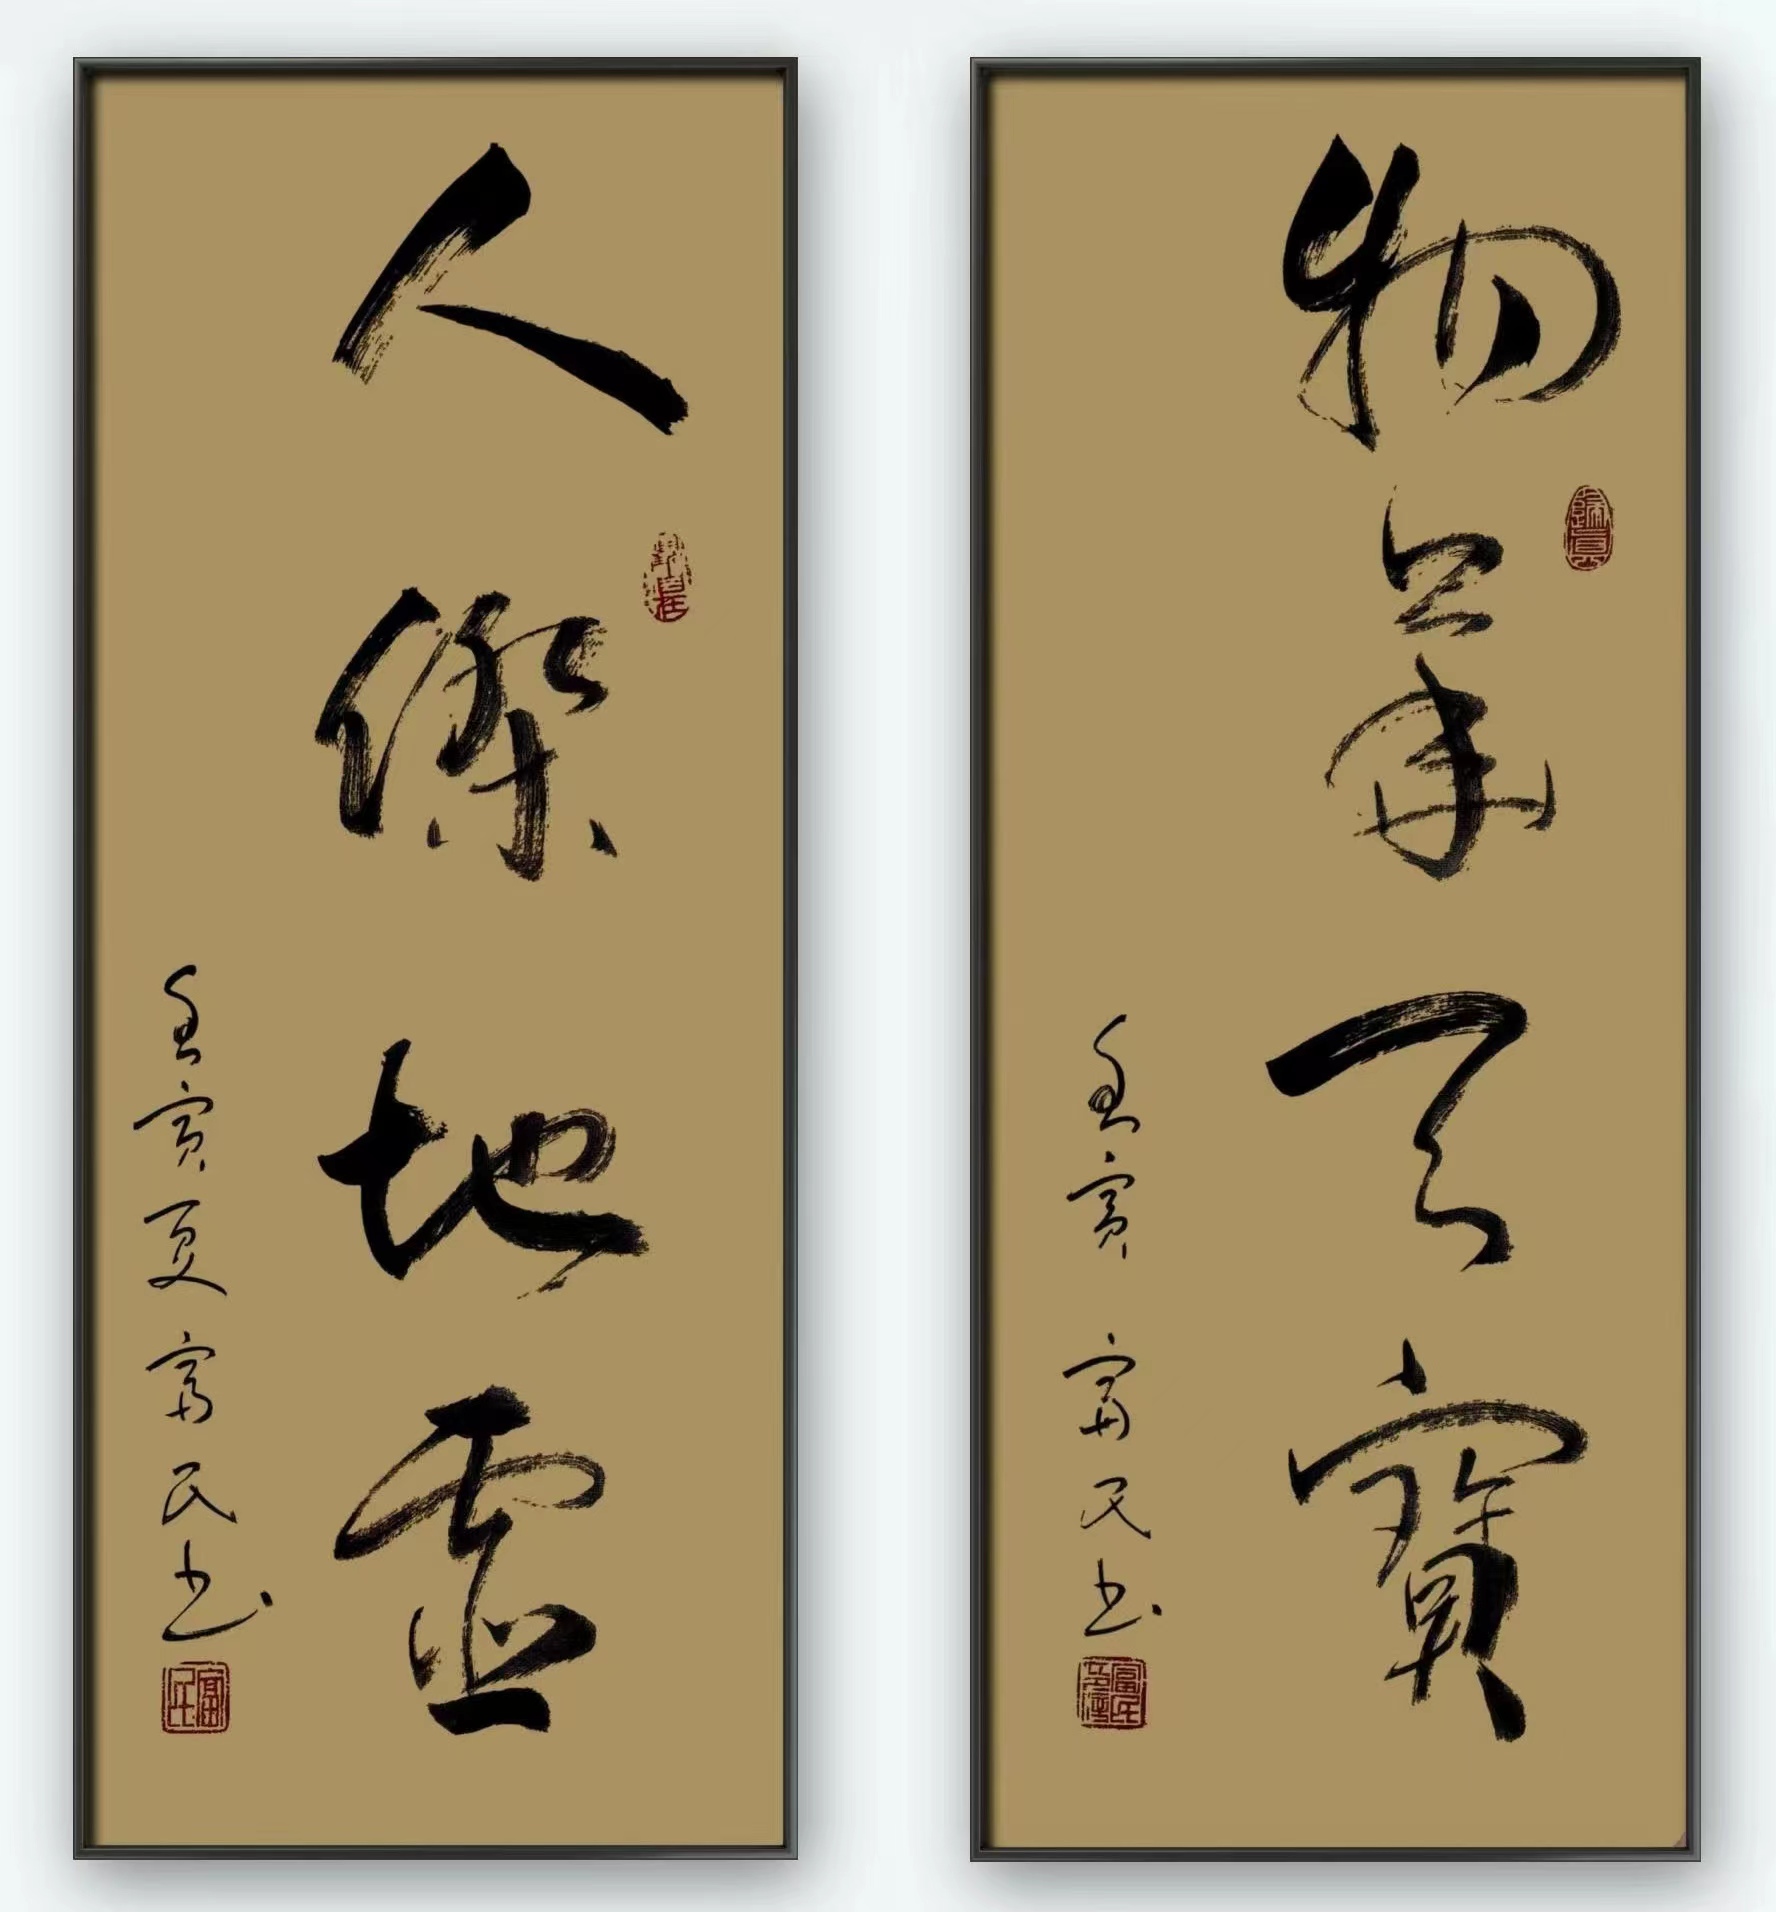 物華天寶
壬寅 富民书
人傑地靈
壬寅夏 富民书
富民